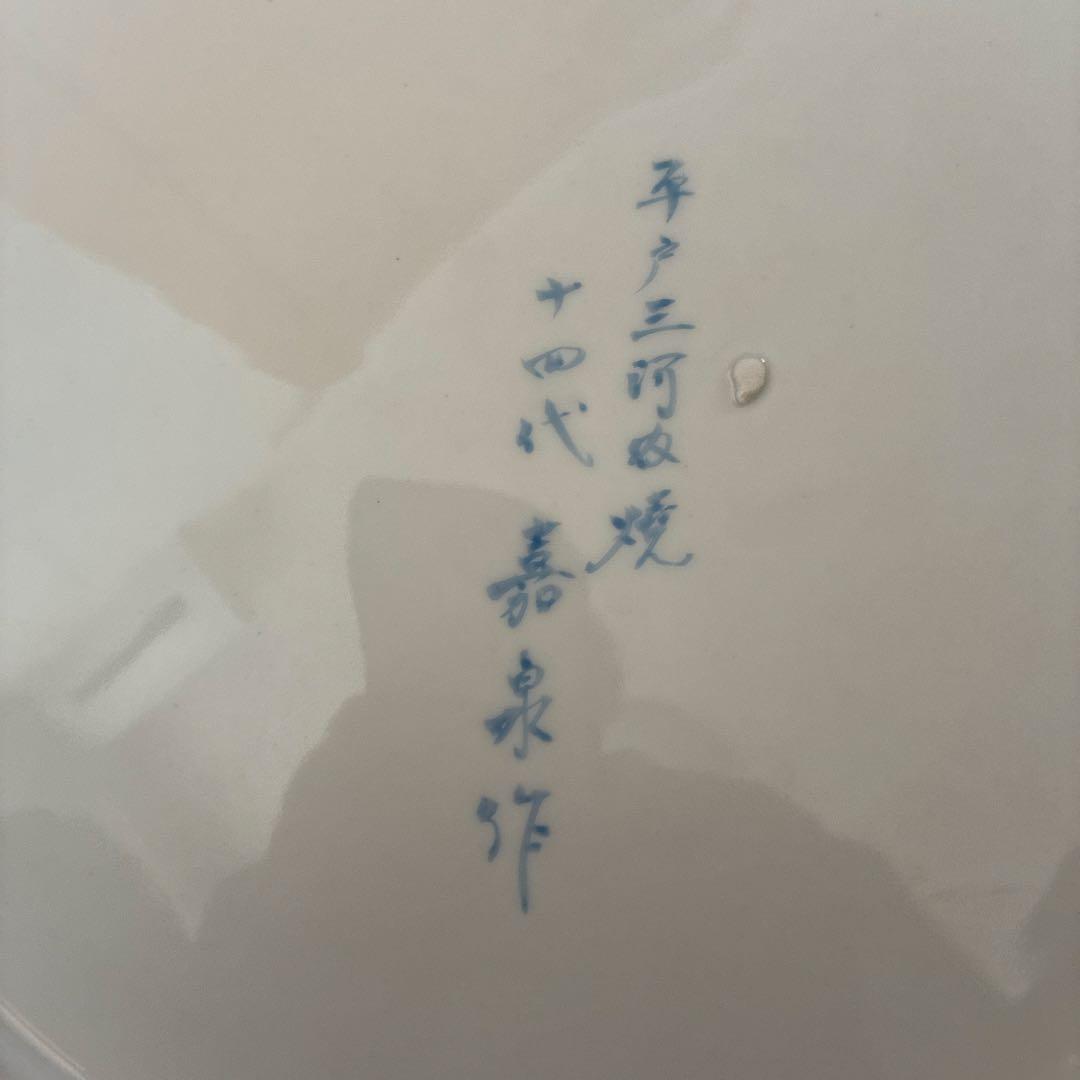 平戸三河内焼
十四代 嘉泉作